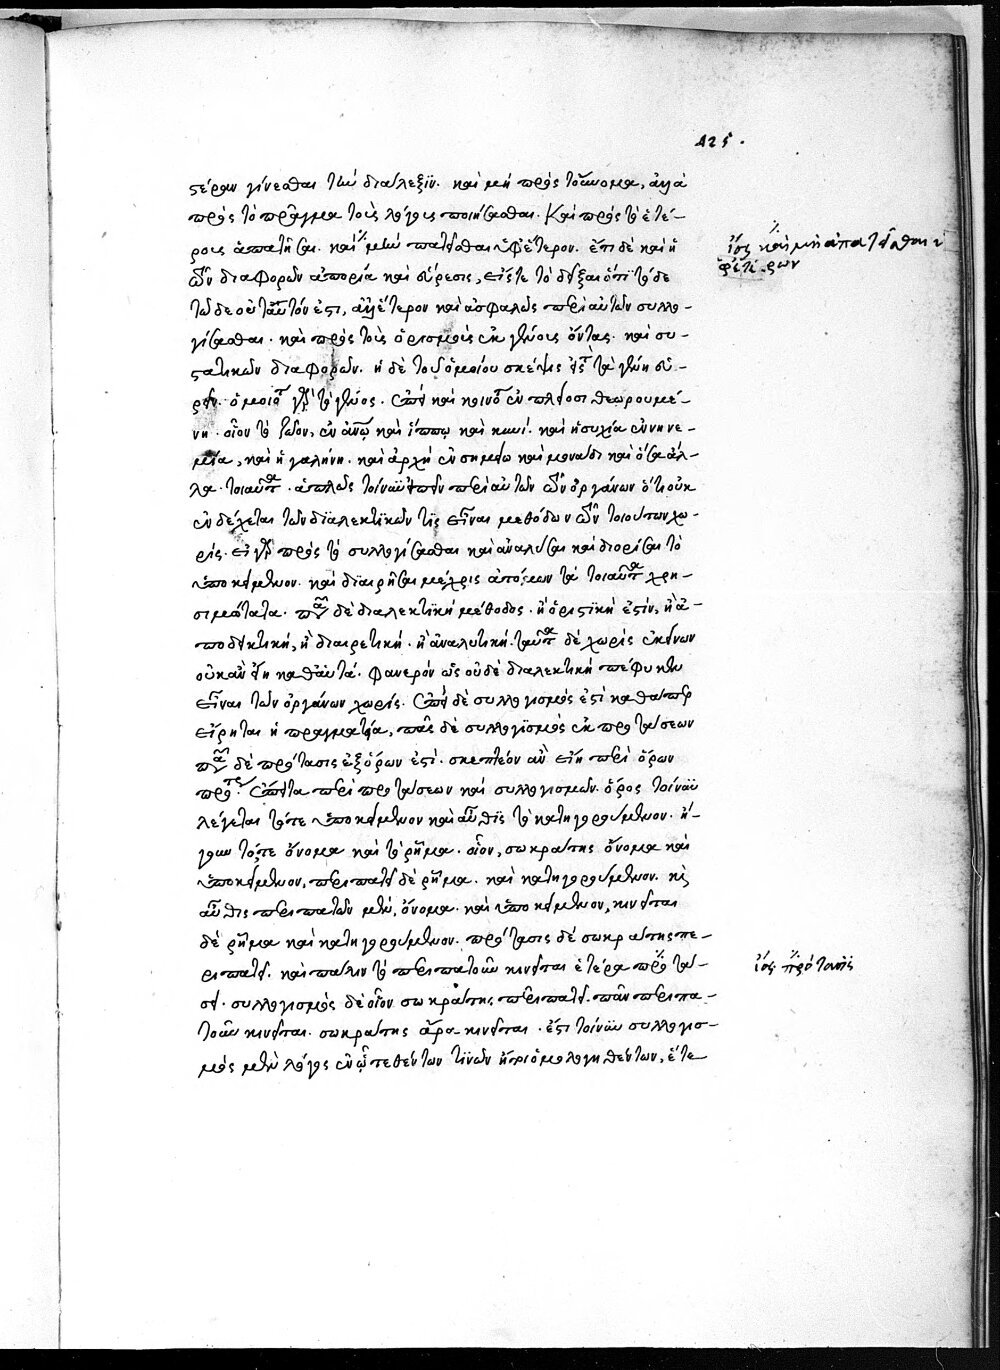 425.
στέραν γίνεσθαι τὴν διάλεξιν. καὶ μὴ πρὸς τοὔνομα, ἀλλὰ
πρὸς τὸ πρᾶγμα τοὺς λόγους ποιήσασθαι. Καὶ πρὸς τὸ ἑτέ-
ρους ἀπατῆσαι. καὶ μὴν πατεῖσθαι ὑφ' ἑτέρον. ἔτι δὲ καὶ ἡ
τῶν διαφορῶν ἀπορία καὶ εὕρεσις, εἴς τε τὸ δεῖξαι ὅτι τόδε
τῶδε οὐ ταὐτόν ἐστι, ἀλλ' ἕτερον καὶ ἀσφαλῶς περὶ αὐτῶν συλλο-
γίσασθαι. καὶ πρὸς τοὺς ὁρισμοὺς ἐκ γένους ὄντας. καὶ συ-
στατικῶν διαφορῶν. ἡ δὲ τοῦ ὁμοίου σκέψις ἐστὶ τὰ γένη εὑ-
ρεῖν. ὁμοιότης γὰρ τὸ γένος. ἐπεὶ καὶ κοινότης ἐν πλείοσι θεωρουμέ-
νη. οἷον τὸ ζῶον, ἐν ἀνθρώπῳ καὶ ἵππῳ καὶ κυνί. καὶ ἡσυχία ἐν νηνε-
μία, καὶ ἡ γαλήνη. καὶ ἀρχὴ ἐν σημείω καὶ μονάδι καὶ ὅσα ἄλ-
λα τοιαῦτα. ἁπλῶς τοίνυν εἰπεῖν περὶ αὐτῶν τῶν ὀργάνων ὅτι οὐκ
ἐνδέχεται τῶν διαλεκτικῶν τις εἶναι μεθόδων τῶν τοιούτων χω-
ρίς. εἰ γὰρ πρὸς τὸ συλλογίσασθαι καὶ ἀναλῦσαι καὶ διορίσαι τὸ
ὑποκείμενον. καὶ διαιρῆσαι μέχρις ἀτόμων τὰ τοιαῦτα χρη-
σιμώτατα. πᾶσα δὲ διαλεκτικὴ μέθοδος. ἢ ὁριστική ἐστιν, ἢ ἀ-
ποδεικτική, ἢ διαιρετική. ἢ ἀναλυτική. ταῦτα δὲ χωρὶς ἐκείνων
οὐκ ἂν εἴη καθ' αὑτά. φανερὸν ὡς οὐδὲ διαλεκτικὴ πέφυκεν
εἶναι τῶν ὀργάνων χωρίς. ἐπεὶ δὲ συλλογισμός ἐστι καθάπερ
εἴρηται ἡ πραγματεία, πᾶς δὲ συλλογισμὸς ἐκ προτάσεων
πᾶσα δὲ πρότασις ἐξ ὅρων ἐστί. σκεπτέον ἂν εἴη περὶ ὅρων
πρότερον. ἔπειτα περὶ προτάσεων καὶ συλλογισμῶν. ὅρος τοίνυν
λέγεται τό τε ὑποκείμενον καὶ αὖθις τὸ κατηγορούμενον. ἤ-
γουν τό τε ὄνομα καὶ τὸ ῥῆμα. οἷον, σωκράτης ὄνομα καὶ
ὑποκείμενον, περιπατεῖ δὲ ῥῆμα. καὶ κατηγορούμενον. καὶ
αὖθις περιπατῶν μὲν, ὄνομα. καὶ ὑποκείμενον, κινεῖται
δὲ ῥῆμα καὶ κατηγορούμενον. πρότασις δὲ σωκράτης πε-
ριπατεῖ. καὶ πάλιν τὸ περιπατοῦν κινεῖται ἑτέρα πρότα-
σι. συλλογισμὸς δὲ οἷον σωκράτης περιπατεῖ. πᾶν περιπα-
τοῦν κινεῖται. σωκράτης ἄρα κινεῖται. ἔστι τοίνυν συλλογισ-
μὸς μὲν λόγος ἐν ᾧ τεθέντων τινῶν ἤτοι ὁμολογηθέντων, ἕτε
ἴσως καὶ μὴ ἀπατᾶσθαι ὑ
φ' ἑτέρων
ἴσως πρότασις